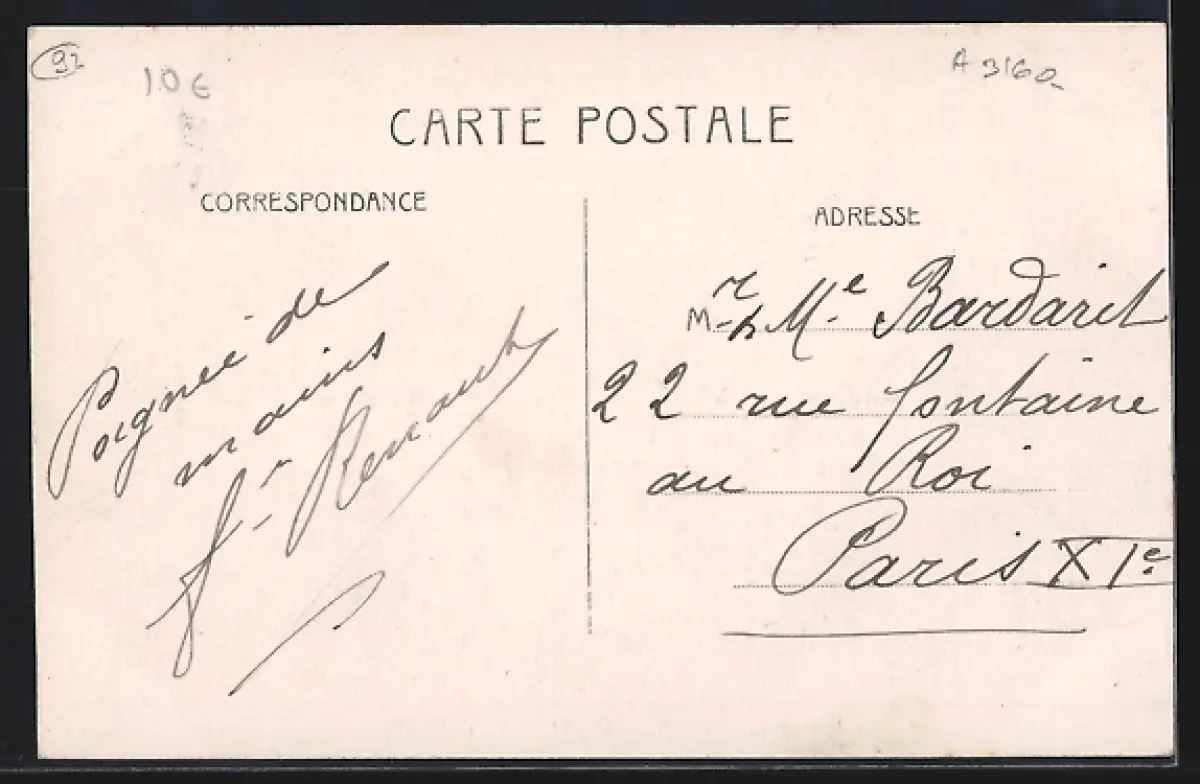 92
10€
A 3160
CARTE POSTALE
CORRESPONDANCE
ADRESSE
Poignée de
mains
Renault
Mr & Me Bardaril
22 rue Fontaine
au Roi
Paris XIe